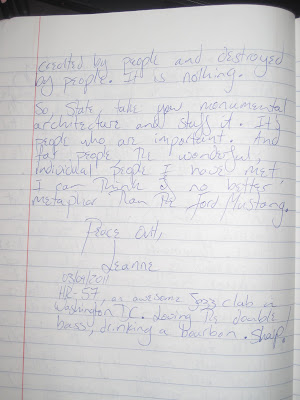 created by people and destroyed
by people. It is nothing.
So State, take your monumental
architecture and stuff it. It's
people who are important. And
for people the wonderful,
individual people I have met,
I can think of no better
metaphor than the Ford Mustang.
Peace Out,
Leanne
HR-57, an awesome Jazz club in
Washington D.C. Loving the double
bass, drinking a bourbon. Sharp!